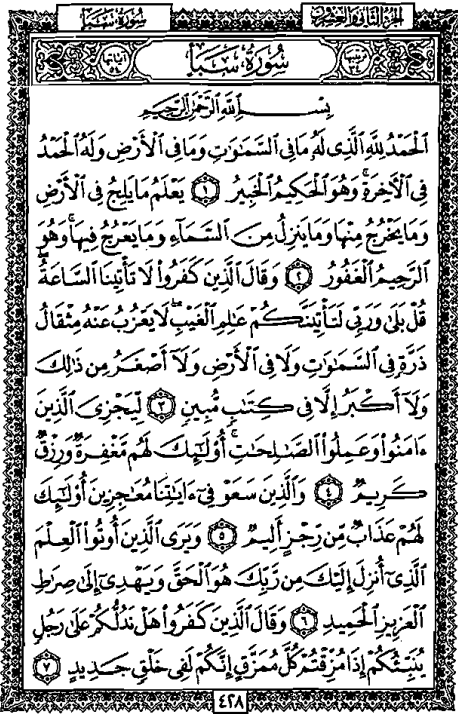 الجزء الثاني والعشرون
سُورَةُ سَبَإ
ترتيبها ٣٤ سُورَةُ سَبَإ آياتها ٥٤
بِسْمِ ٱللَّهِ ٱلرَّحْمَٰنِ ٱلرَّحِيمِ
ٱلْحَمْدُ لِلَّهِ ٱلَّذِى لَهُۥ مَا فِى ٱلسَّمَٰوَٰتِ وَمَا فِى ٱلْأَرْضِ وَلَهُ ٱلْحَمْدُ
فِى ٱلْءَاخِرَةِ ۚ وَهُوَ ٱلْحَكِيمُ ٱلْخَبِيرُ ١ يَعْلَمُ مَا يَلِجُ فِى ٱلْأَرْضِ
وَمَا يَخْرُجُ مِنْهَا وَمَا يَنزِلُ مِنَ ٱلسَّمَآءِ وَمَا يَعْرُجُ فِيهَا ۚ وَهُوَ
ٱلرَّحِيمُ ٱلْغَفُورُ ٢ وَقَالَ ٱلَّذِينَ كَفَرُوا۟ لَا تَأْتِينَا ٱلسَّاعَةُ ۖ
قُلْ بَلَىٰ وَرَبِّى لَتَأْتِيَنَّكُمْ عَٰلِمِ ٱلْغَيْبِ ۖ لَا يَعْزُبُ عَنْهُ مِثْقَالُ
ذَرَّةٍ فِى ٱلسَّمَٰوَٰتِ وَلَا فِى ٱلْأَرْضِ وَلَآ أَصْغَرُ مِن ذَٰلِكَ
وَلَآ أَكْبَرُ إِلَّا فِى كِتَٰبٍ مُّبِينٍ ٣ لِّيَجْزِىَ ٱلَّذِينَ
ءَامَنُوا۟ وَعَمِلُوا۟ ٱلصَّٰلِحَٰتِ ۚ أُو۟لَٰٓئِكَ لَهُم مَّغْفِرَةٌ وَرِزْقٌ
كَرِيمٌ ٤ وَٱلَّذِينَ سَعَوْ فِىٓ ءَايَٰتِنَا مُعَٰجِزِينَ أُو۟لَٰٓئِكَ
لَهُمْ عَذَابٌ مِّن رِّجْزٍ أَلِيمٌ ٥ وَيَرَى ٱلَّذِينَ أُوتُوا۟ ٱلْعِلْمَ
ٱلَّذِىٓ أُنزِلَ إِلَيْكَ مِن رَّبِّكَ هُوَ ٱلْحَقَّ وَيَهْدِىٓ إِلَىٰ صِرَٰطِ
ٱلْعَزِيزِ ٱلْحَمِيدِ ٦ وَقَالَ ٱلَّذِينَ كَفَرُوا۟ هَلْ نَدُلُّكُمْ عَلَىٰ رَجُلٍ
يُنَبِّئُكُمْ إِذَا مُزِّقْتُمْ كُلَّ مُمَزَّقٍ إِنَّكُمْ لَفِى خَلْقٍ جَدِيدٍ ٧
٤٢٨